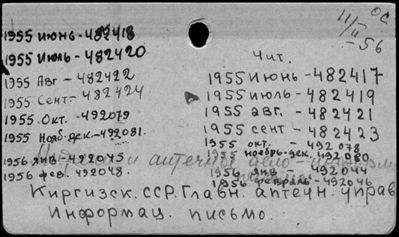 11/II-56
ОС
1955 июнь - 482418
1955 июль - 482420
1955 Авг - 482422
1955 Сент - 482424
1955 Окт. - 492079
1955 Нояб-дек. - 492081.
1956 янв. - 492045
1956 фев. 492048.
Чит.
1955 июнь - 482417
1955 июль - 482419
1955 авг. - 482421
1955 сент - 482423
1955 окт. 492078
1955 ноябрь-дек. 492080
1956 янв 492044
1956 февраль - 492046
и аптечное дело -
Киргизск. ССР. Главн. аптечн. управ
Информац. письмо.